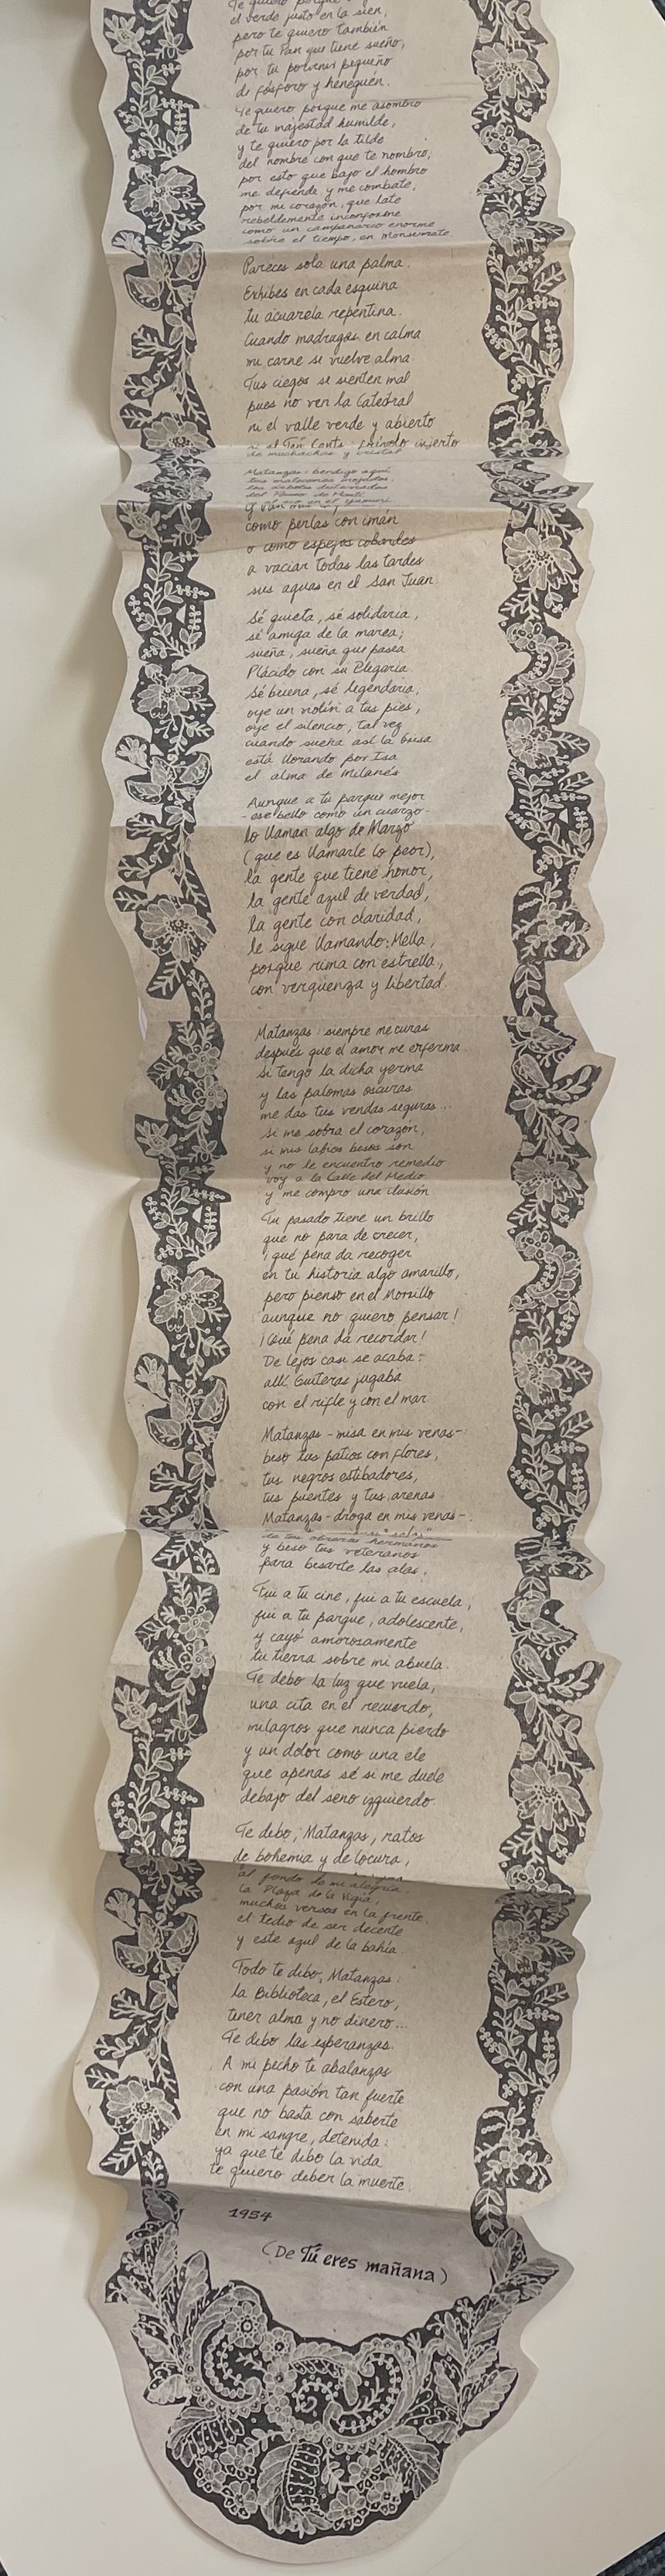 Te quiero porque
el verde justo en la sien,
pero te quiero también
por tu Pan que tiene sueño,
por tu porvenir pequeño
de fósforo y henequén.
Te quiero porque me asombro
de tu majestad humilde,
y te quiero por la tilde
del nombre con que te nombro,
por esto que bajo el hombro
me defiende y me combate,
por mi corazón, que late
rebeldemente inconforme
como un campanario enorme
sobre el tiempo, en Monserrate.
Pareces sola una palma.
Exhibes en cada esquina
tu acuarela repentina.
Cuando madrugas en calma
mi carne se vuelve alma
Tus ciegos se sienten mal
pues no ven la Catedral
ni el valle verde y abierto
ni el Ten Cents: injerto
de muchachas y cristal
Matanzas: bendigo aquí
tus malecones mojados,
los árboles
del Paseo de Martí
en el Yumurí
como perlas con imán
o como espejos cobardes
a vaciar todas las tardes
sus aguas en el San Juan
Sé quieta, sé solidaria,
sé amiga de la marea;
sueña, sueña que pasea
Plácido con su Plegaria.
Sé buena, sé legendaria,
oye un violín a tus pies,
oye el silencio, tal vez
cuando sueña así la brisa
está llorando por Isa
el alma de Milanés
Aunque a tu parque mejor
-ese bello como un cuarzo-
lo llaman algo de Marzo
(que es llamarle lo peor),
la gente que tiene honor,
la gente azul de verdad,
la gente con claridad,
le sigue llamando: Mella,
porque rima con estrella,
con vergüenza y libertad.
Matanzas: siempre me curas
después que el amor me enferma
Si tengo la dicha yerma
y las palomas oscuras
me das tus vendas seguras...
Si me sobra el corazón,
si mis labios besos son
y no le encuentro remedio
voy a la Calle del Medio
y me compro una ilusión.
Tu pasado tiene un brillo
que no para de crecer,
¡qué pena da recoger
en tu historia algo amarillo,
pero pienso en el Morrillo
aunque no quiero pensar!
¡Qué pena da recordar!
De lejos casi se acaba:
allí Guiteras jugaba
con el rifle y con el mar
Matanzas - misa en mis venas-:
beso tus patios con flores,
tus negros estibadores,
tus puentes y tus arenas
Matanzas - droga en mis venas-:
de tus obreros hermanos
y beso tus veteranos
para besarte las alas.
Fui a tu cine, fui a tu escuela,
fui a tu parque, adolescente,
y cayó amorosamente
tu tierra sobre mi abuela.
Te debo la luz que vuela,
una cita en el recuerdo,
milagros que nunca pierdo
y un dolor como una ele
que apenas sé si me duele
debajo del seno izquierdo.
Te debo, Matanzas, ratos
de bohemia y de locura,
al fondo de mi alegría
la Plaza de la Vigía,
muchos versos en la frente,
el tedio de ser decente
y este azul de la bahía
Todo te debo, Matanzas:
la Biblioteca, el Estero,
tener alma y no dinero...
Te debo las esperanzas.
A mi pecho te abalanzas
con una pasión tan fuerte
que no basta con saberte
en mi sangre, detenida:
ya que te debo la vida
te quiero deber la muerte.
1954
(De Tú eres mañana)